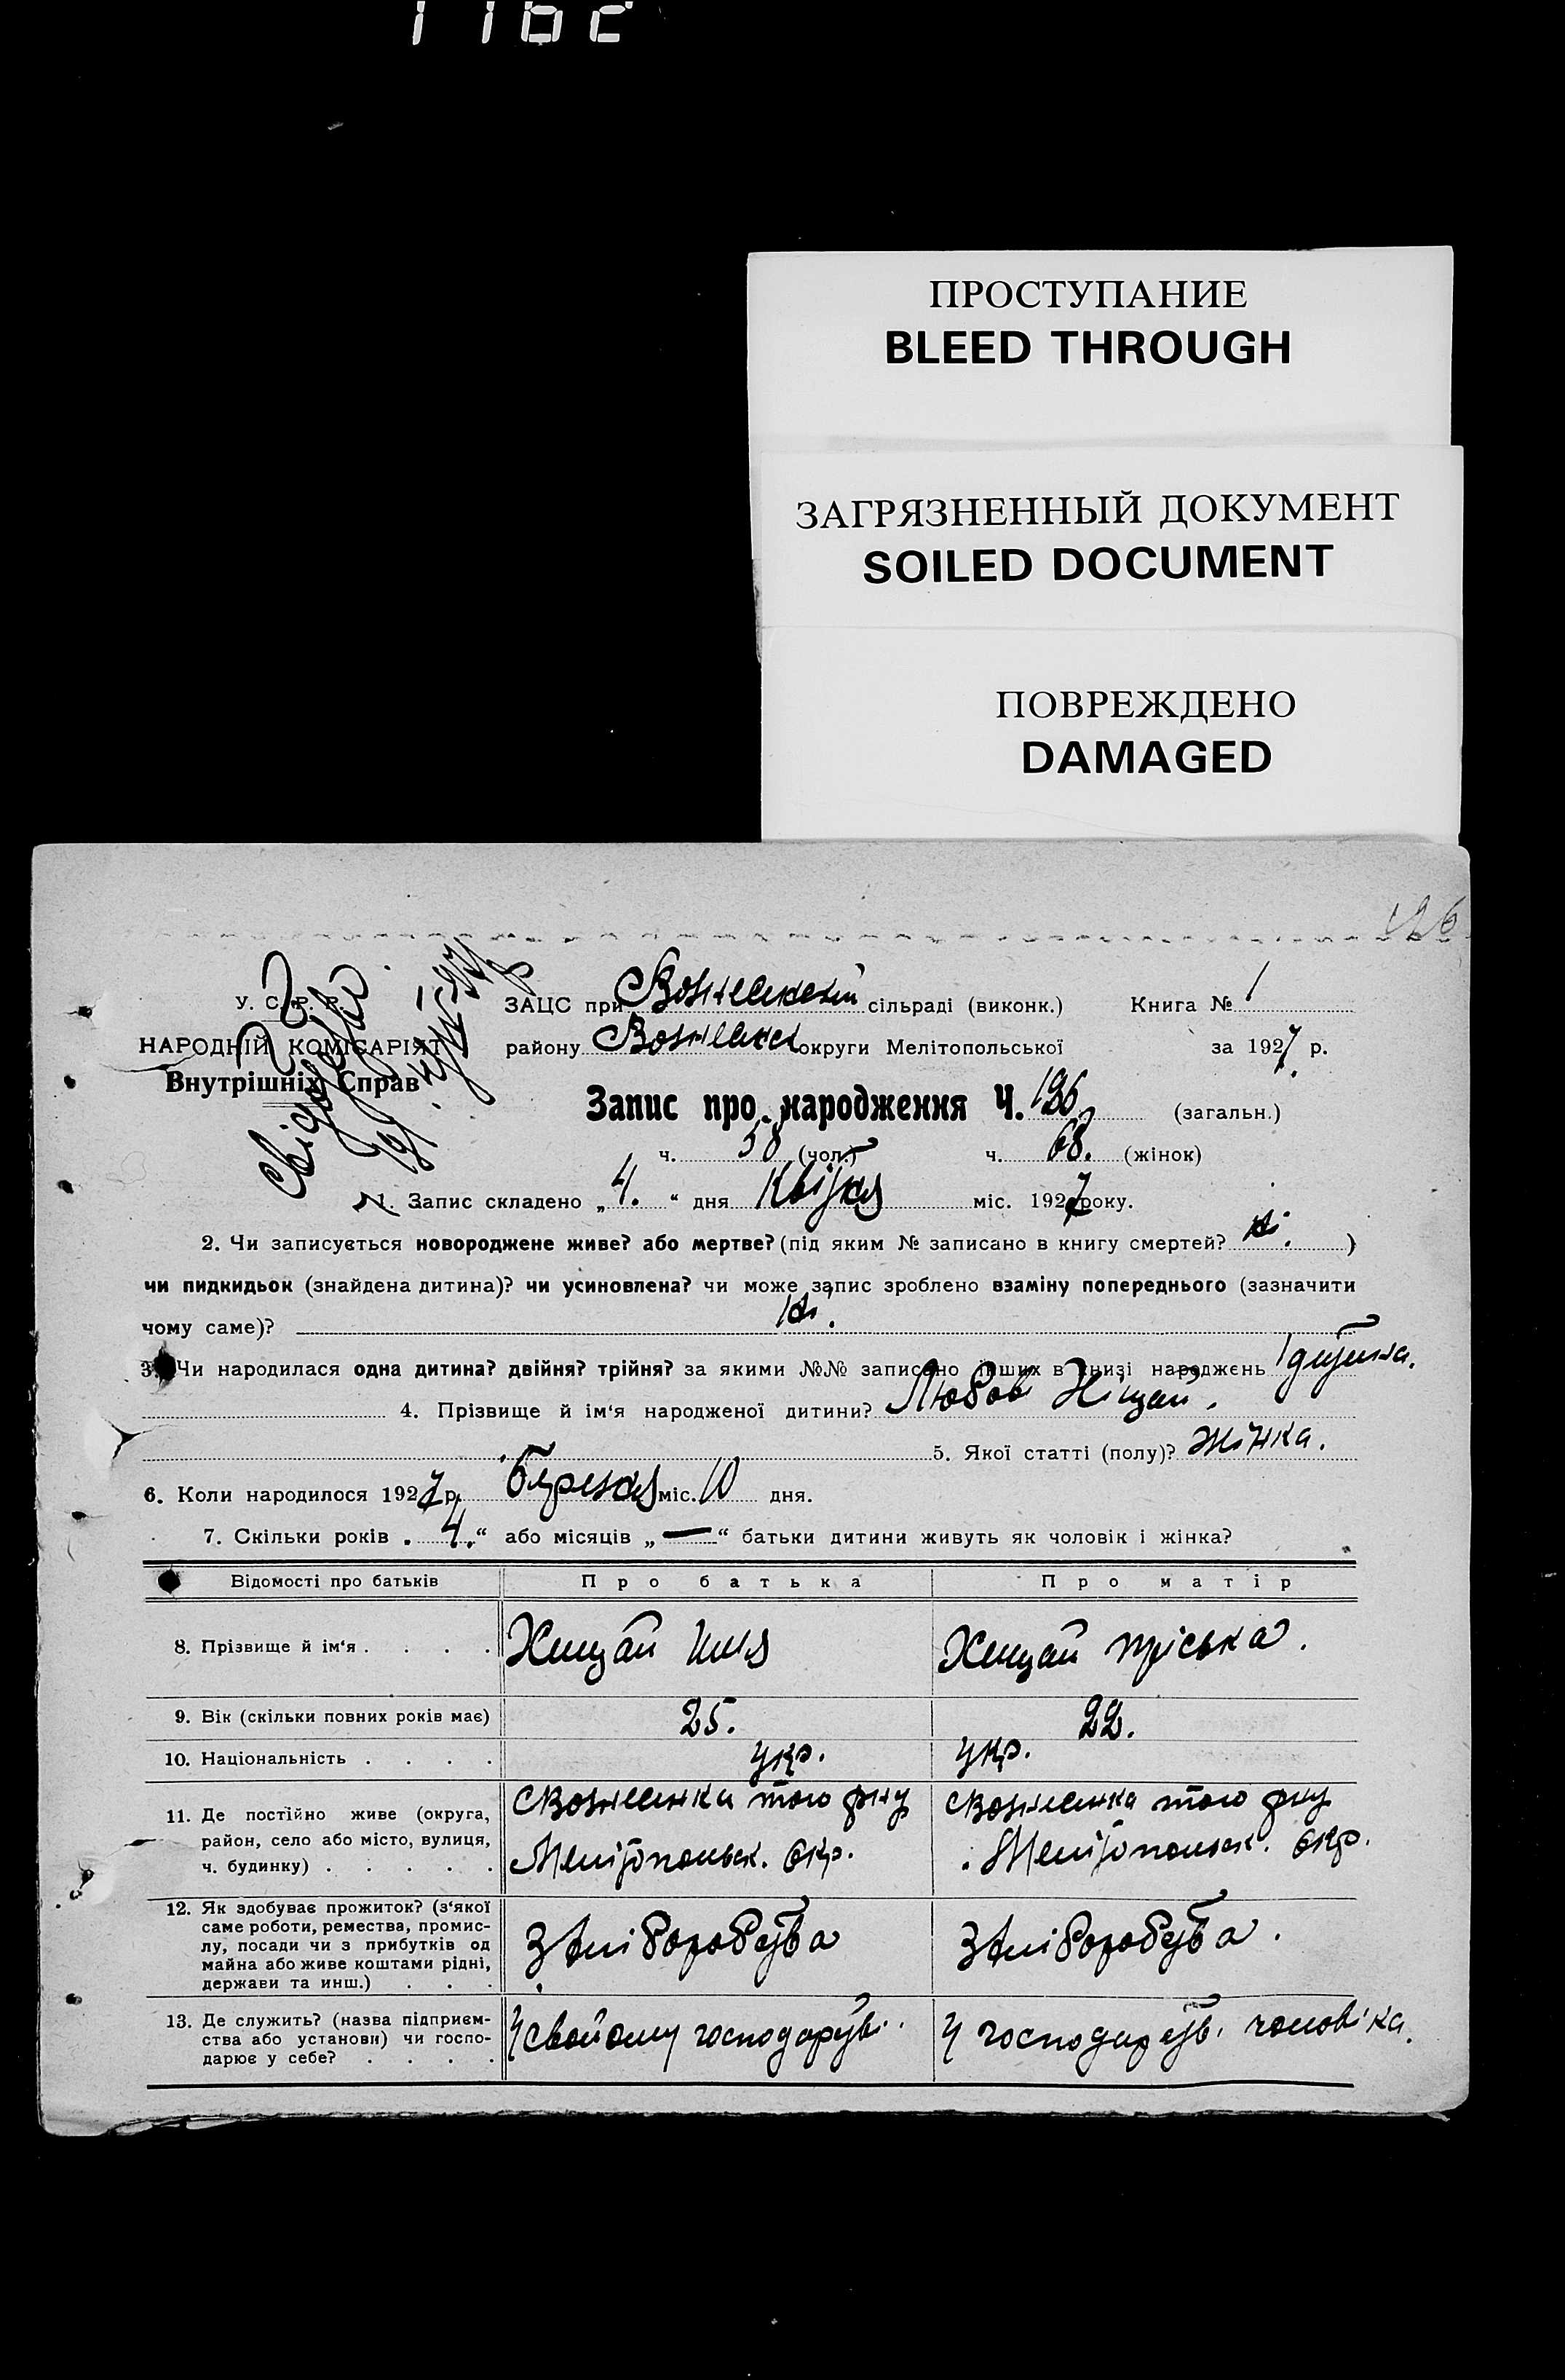 1162
ПРОСТУПАНИЕ
BLEED THROUGH
ЗАГРЯЗНЕННЫЙ ДОКУМЕНТ
SOILED DOCUMENT
ПОВРЕЖДЕНО
DAMAGED
126
У. С. Р. Р.
НАРОДНІЙ КОМІСАРІЯТ
Внутрішніх Справ
ЗАЦС при Вознесенській сільраді (виконк.) Книга № 1
району Вознесенськ округи Мелітопольської за 1927 р.
Запис про народження Ч. 126 (загальн.)
ч. 58 (чол.) ч. 68. (жінок)
1. Запис складено „4.“ дня Квітня міс. 1927 року.
2. Чи записується новороджене живе? або мертве? (під яким № записано в книгу смертей? ні. )
чи пидкидьок (знайдена дитина)? чи усиновлена? чи може запис зроблено взаміну попереднього (зазначити
чому саме)? ні.
3. Чи народилася одна дитина? двійня? трійня? за якими №№ записано інших в книзі народжень 1 дитина.
4. Прізвище й ім‘я народженої дитини? Любов
5. Якої статті (полу)? жінка.
6. Коли народилося 1927 р. березня міс. 10 дня.
7. Скільки років „4.“ або місяців „—“ батьки дитини живуть як чоловік і жінка?
Відомості про батьків Про батька Про матір
8. Прізвище й ім‘я . . . .
9. Вік (скільки повних років має) 25. 22.
10. Національність . . . . укр. укр.
11. Де постійно живе (округа,
район, село або місто, вулиця,
ч. будинку) . . . . .
того рну
Мелітопольськ. окр.
того рну
Мелітопольськ. окр.
12. Як здобуває прожиток? (з‘якої
саме роботи, ремества, промис-
лу, посади чи з прибутків од
майна або живе коштами рідні,
держави та инш.) . . .
Хліборобства
Хліборобства.
13. Де служить? (назва підприєм-
ства або установи) чи госпо-
дарює у себе? . . . .
У свойому господарстві.
У господарстві чоловіка.